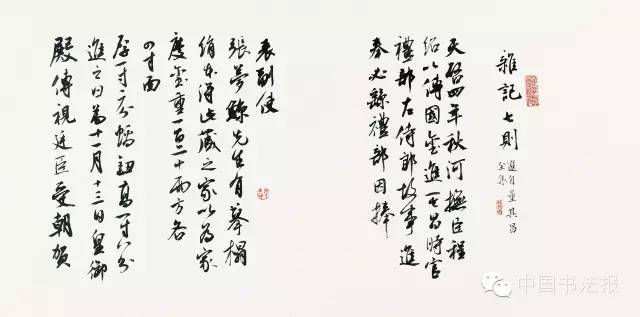 雜記七則
選自董其昌
全集
天啓四年秋河撫臣程
紹以傳國璽進其昌時官
禮部左侍郎故事進
奏必繇禮部因捧
表副使
張夢鯨先生有摹榻
絹本得此藏之家以為家
度璽重一百二十兩方各
四寸面
厚一寸蟠鈕高一寸八分
進之日為十一月十三日皇御
殿傳視廷臣受朝賀
中国书法报